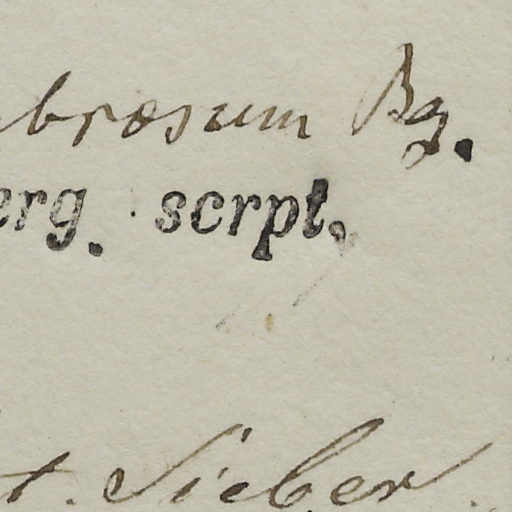 brosum Bg.
erg. scrpt.
t. Sieber